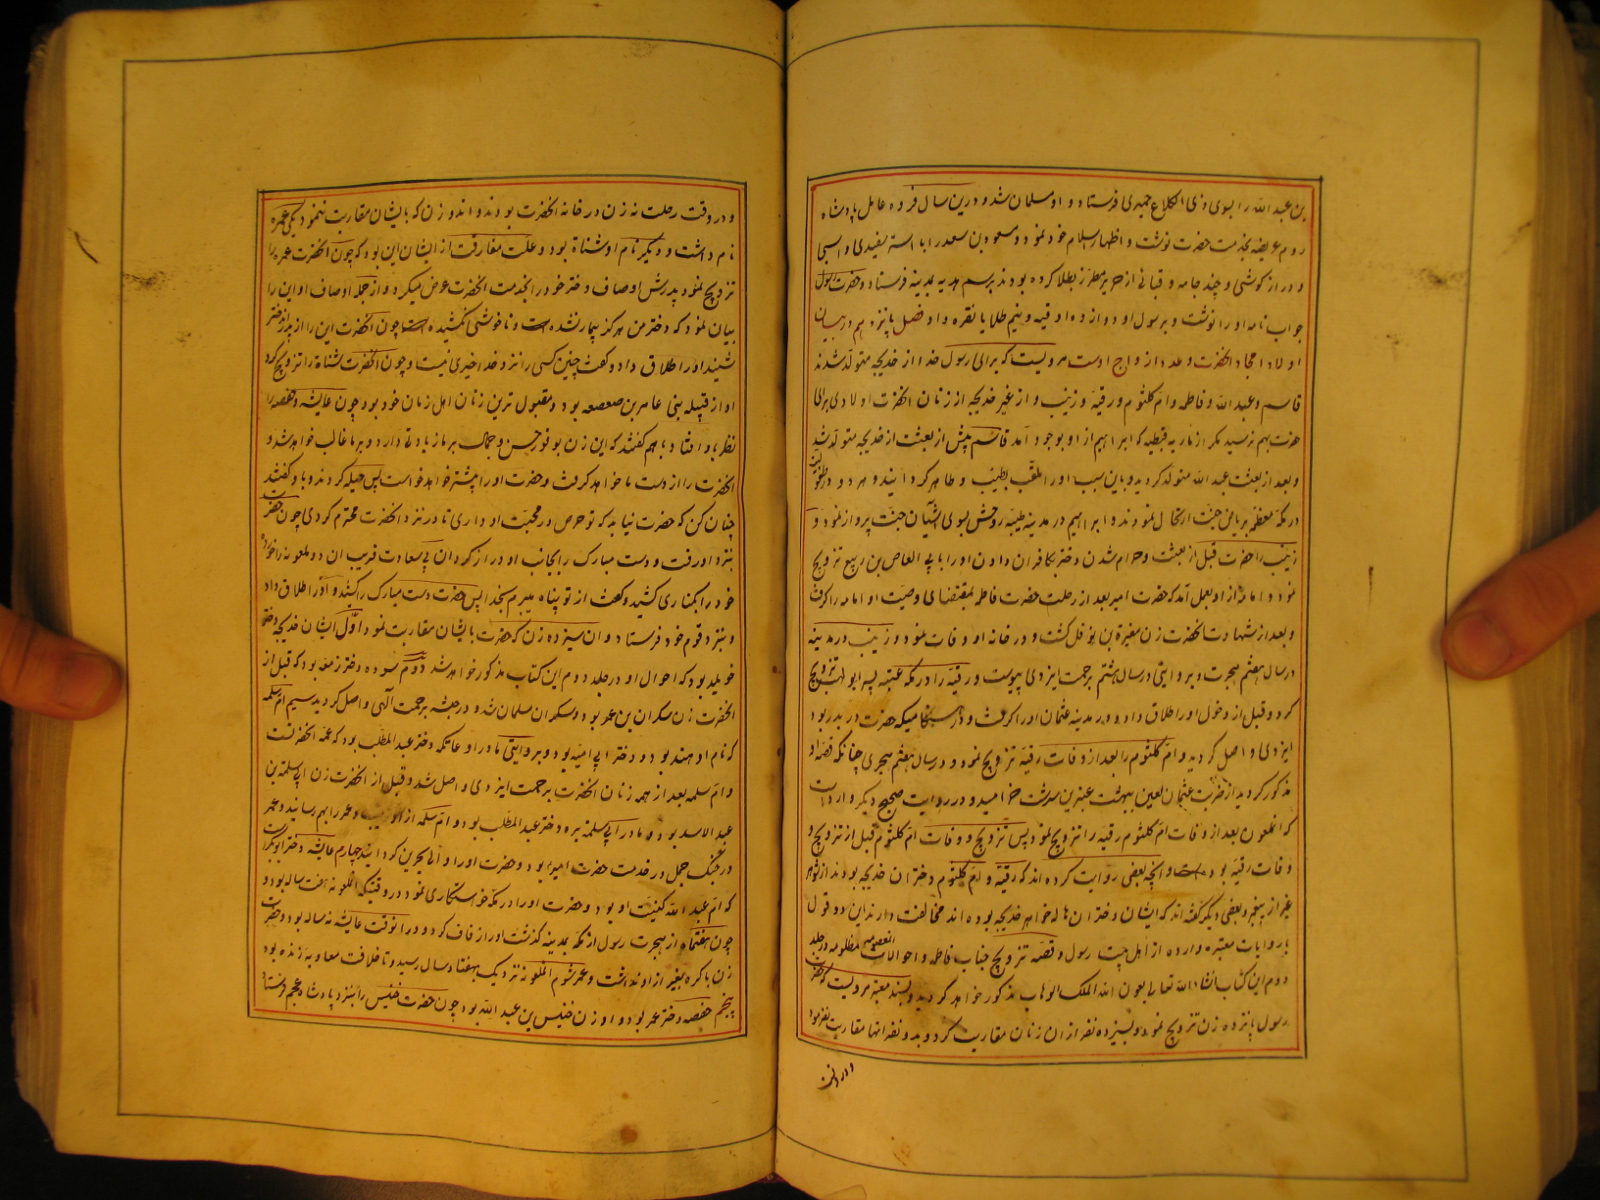 بن عبد الله را بسوی ذی الکلاع حمیری فرستاد و او مسلمان شد و درین سال فروه عامل پادشاه
روم عریضه بخدمت حضرت نوشت و اظهار اسلام خود نمود و مسعود بن سعد را با استه سفیدی و اسبی
و دراز کوشی و چند جامه و قبائی از حریر مطرز بطلا کرده بودند برسم هدیه بمدینه فرستاد و حضرت رسول
جواب نامه او را نوشت و برسول او دوازده اوقیه و نیم طلا یا نقره داد فصل پانزدهم در بیان
اولاد امجاد انحضرت و عدد ازواج اوست مرویست که برای رسول خدا از خدیجه متولد شدند
قاسم و عبد الله و فاطمه و ام کلثوم و رقیه و زینب و از غیر خدیجه از زنان انحضرت اولادی برای
حضرت بهم نرسید مکر از ماریه قبطیه که ابراهیم از او بوجود آمد قاسم پیش از بعثت از خدیجه متولد شد
و بعد از بعثت عبد الله متولد کردید و باین سبب او را ملقب بطیب و طاهر کردانیدند و هر دو در طفولیت
در مکه معظمه بریاض جنت ارتحال نمودند و ابراهیم در مدینه طیبه روحش بسوی اشیان جنت پرواز نمود و
زینب را حضرت قبل از بعثت و حرام شدن دختر بکافران دادن او را بابی العاص بن ربیع تزویج
نمود و امامه از او بعمل آمد که حضرت امیر بعد از رحلت حضرت فاطمه بمقتضای وصیت او امامه را کرفت
و بعد از شهادت انحضرت زن مغیرة بن نوفل کشت و در خانه او وفات نمود و زینب در مدینه
در سال هفتم هجرت و بروایتی در سال هشتم برحمت ایزدی پیوست و رقیه را در مکه عتبه پسر ابو لهب تزویج
کرد و قبل از دخول او را طلاق داد و در مدینه عثمان او را کرفت و در هنکامیکه حضرت در بدر بود
ایزدی واصل کردید و ام کلثوم را بعد از وفات رقیه تزویج نمود و در سال هفتم هجری چنانکه قصه او
مذکور کردید از ضربت عثمان لعین ببهشت عنبرین سرشت خرامید و در روایت صحیح دیکر وارد است
که انملعون بعد از وفات ام کلثوم رقیه را تزویج نمود پس تزویج و وفات ام کلثوم قبل از تزویج و
وفات رقیه بوده است و انچه بعضی روایت کرده اند که رقیه و ام کلثوم دختران خدیجه بودند از شوهر
غیر از پیغمبر و بعضی دیکر کفته اند که ایشان دختران هاله خواهر خدیجه بوده اند مخالفت دارند این دو قول
با روایات معتبره وارده از اهل بیت رسول و قصه تزویج جناب فاطمه و احوالات انمعصومه مظلومه در جلد
دوم این کتاب انشاء الله تعالی بعون الله الملک الوهاب مذکور خواهد کردید و بسند معتبر مرویست که حضرت
رسول پانزده زن تزویج نمود و بسیزده نفر از ان زنان مقاربت کرد و بدو نفر انها مقاربت نفرمود
و در وقت
و در وقت رحلت نه زن در خانه انحضرت بودند و اندو زن که بایشان مقاربت ننمود یکی عمره
نام داشت و دیکر نام او شناة بود و علت مفارقت از ایشان این بود که چون انحضرت عمره را
تزویج نمود پدرش اوصاف دختر خود را بخدمت انحضرت عرض میکرد و از جمله اوصاف او این را
بیان نمود که دختر من هرکز بیمار نشده است و ناخوشی نکشیده است چون انحضرت این را از پدر دختر
شنید او را طلاق داد و کفت چنین کسی را نزد خدا خیری نیست و چون انحضرت شناة را تزویج کرد
او از قبیله بنی عامر بن صعصعه بود و مقبول ترین زنان اهل زمان خود بود چون عایشه و حفصه را
نظر باو افتاد با هم کفتند که این زن بوفور حسن و جمال بر ما زیادتی دارد و بر ما غالب خواهد شد و
انحضرت را از دست ما خواهد کرفت و حضرت او را بیشتر خواهد خواست پس حیله کردند و باو کفتند
چنان کن که حضرت نیابد که تو حرص در محبت او داری تا در نزد انحضرت محترم کردی چون حضرت
بنزد او رفت و دست مبارک را بجانب او دراز کرد ان بی سعادت فریب ان دو ملعونه را خورده
خود را بکناری کشید و کفت از تو پناه میبرم بخدا پس حضرت دست مبارک را کشید و او را طلاق داد
و بنزد قوم خود فرستاد و ان سیزده زن که حضرت بایشان مقاربت نمود اول ایشان خدیجه دختر
خویلد بود که احوال او در جلد دوم این کتاب مذکور خواهد شد دوم سوده دختر زمعه بود که قبل از
انحضرت زن سکران بن عمر بود و سکران مسلمان شد و در حبشه برحمت آلهی واصل کردید سیم ام سلمه
که نام او هند بود و دختر ابی امیه بود و بروایتی مادر او عاتکه دختر عبد المطلب بود که عمه انحضرتست
و ام سلمه بعد از همه زنان انحضرت برحمت ایزدی واصل شد و قبل از انحضرت زن ابی سلمة بن
عبد الاسد بوده مادر ابی سلمه بره دختر عبد المطلب بود و ام سلمه از او زینب و عمر را بهم رسانید و عمر
در جنک جمل در خدمت حضرت امیر بود و حضرت او را والی بحرین کردانید چهارم عایشه دختر ابو بکر است
که ام عبد الله کنیت او بود و حضرت او را در مکه خواستکاری نمود در وقتیکه انملعونه هفت ساله بود و
چون هفتماه از هجرت رسول از مکه بمدینه کذشت او را زفاف کرد و در انوقت عایشه نه ساله بود و حضرت
زن باکره بغیر از او نداشت و عمر شوم انملعونه نزدیک بهفتاد سال رسید و تا خلافت معاویه زنده بود
پنجم حفصه دختر عمر بود و او زن خنیس بن عبد الله بود چون حضرت خنیس را بنزد پادشاه عجم فرستاد